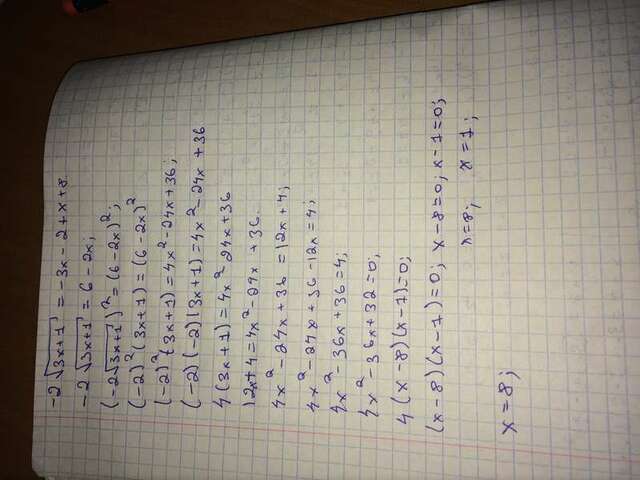 -2√3x+1 = -3x - 2 + x + 8
-2√3x+1 = 6 - 2x;
(-2√3x+1)² = (6 - 2x)²;
(-2)² (3x+1) = (6 - 2x)²
(-2)² (3x+1) = 4x² - 24x + 36;
(-2)(-2)(3x+1) = 4x² - 24x + 36
4(3x+1) = 4x² - 24x + 36
12x + 4 = 4x² - 24x + 36.
4x² - 24x + 36 = 12x + 4;
4x² - 24x + 36 - 12x = 4;
4x² - 36x + 36 = 4;
4x² - 36x + 32 = 0;
4(x-8)(x-1) = 0;
(x-8)(x-1) = 0; x-8=0; x-1=0;
x=8; x=1;
x=8;